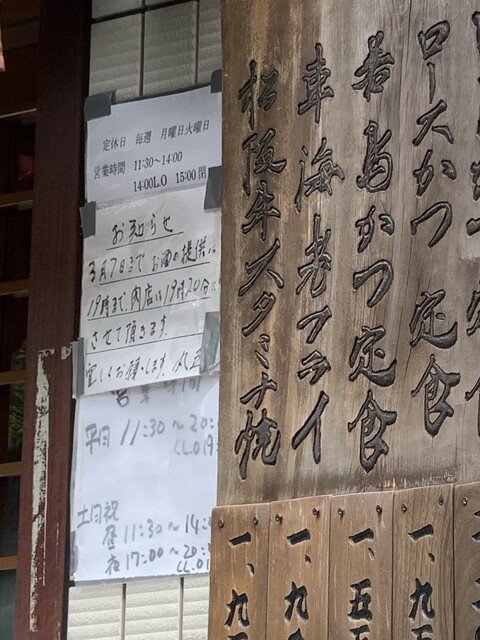 定休日 毎週 月曜日火曜日
営業時間 11:30〜14:00
14:00L.O 15:00閉
お知らせ
3月7日まで、お酒の提供は
19時まで、閉店は19時20分
させて頂きます。
宜しくお願いします。
営業時間
平日 11:30〜20:
LL.O19:
土日祝
昼 11:30〜14:
夜 17:00〜20:
ロースかつ定食
若鳥かつ定食
車海老フライ
松阪牛スタミナ焼
一、九
一、五
一、九
一、九